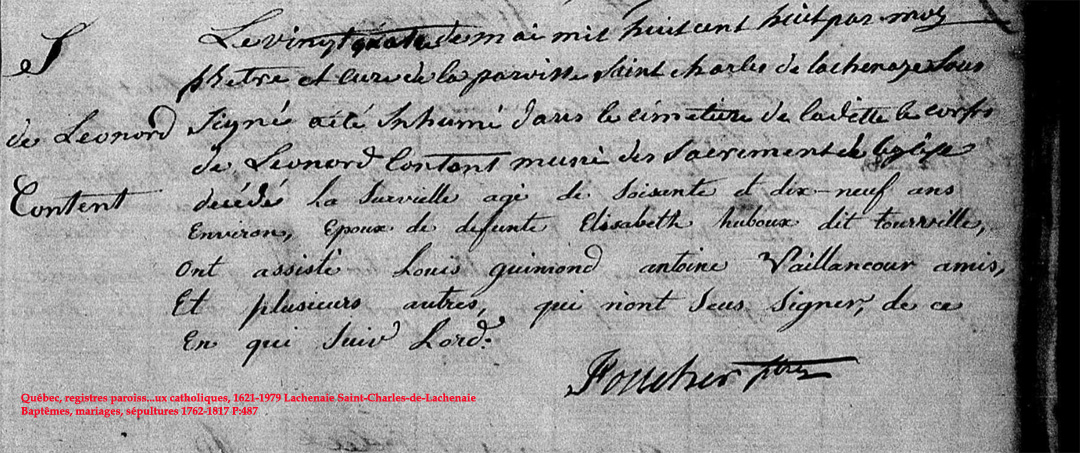 S
de Leonord
Content
Le vingt quatre de mai mil huit cent huit par moy
pbetre et cure de la paroisse saint charles de lachenaye sous
signé a été Inhumé dans le cimetiere de ladette le corps
de Leonord Content muni des sacrement de leglise
décédé La surveille agé de soisente et dix-neuf ans
Environ, Epoux de defunte Elisabeth huboux dit tourville,
ont assisté Louis guimond antoine Vaillancour amis,
Et plusieurs autres, qui n'ont seus signer, de ce
En qui suiv Lord.
Foucher ptre
Québec, registres paroiss...ux catholiques, 1621-1979 Lachenaie Saint-Charles-de-Lachenaie
Baptêmes, mariages, sépultures 1762-1817 P:487